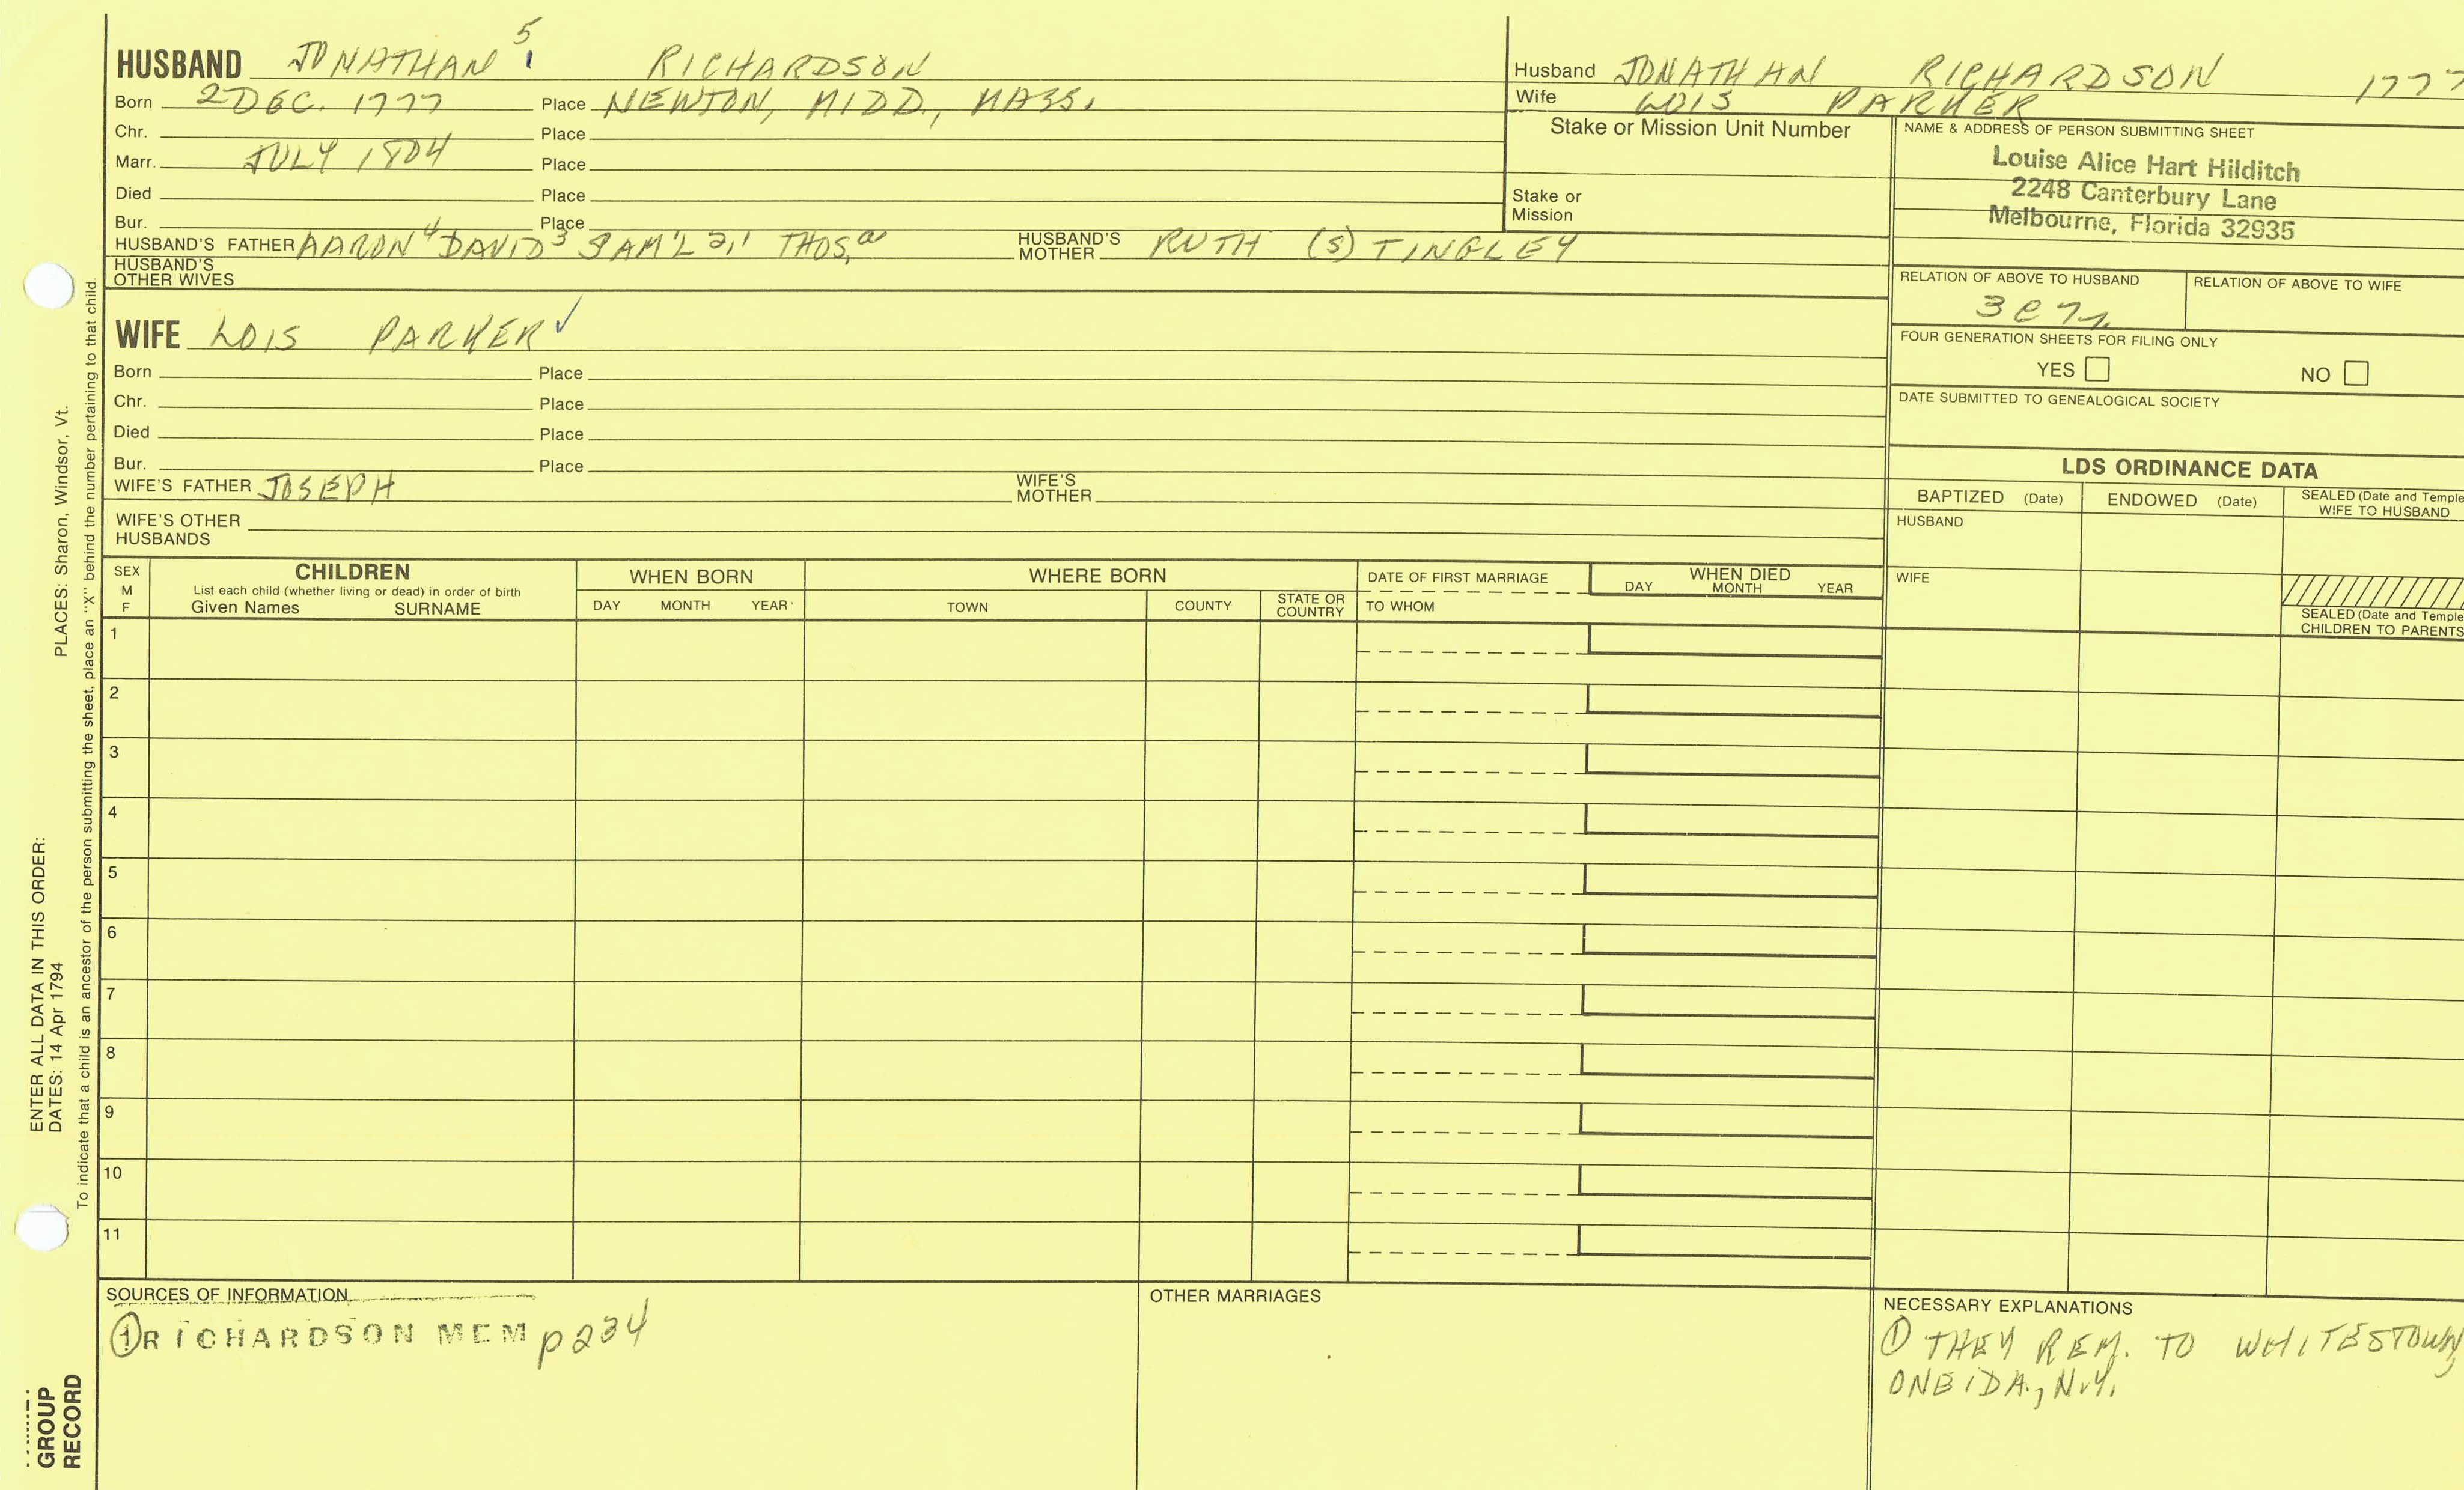 HUSBAND JONATHAN 5 RICHARDSON
Born 2 DEC. 1777 Place NEWTON, MIDD., MASS.
Chr. Place
Marr. JULY 1804 Place
Died Place
Bur. Place
HUSBAND'S FATHER AARON 4 DAVID 3 SAM'L 2,1 THOS, a HUSBAND'S MOTHER RUTH (S) TINGLEY
HUSBAND'S OTHER WIVES
WIFE LOIS PARKER ✓
Born Place
Chr. Place
Died Place
Bur. Place
WIFE'S FATHER JOSEPH WIFE'S MOTHER
WIFE'S OTHER HUSBANDS
Husband JONATHAN RICHARDSON 1777
Wife LOIS PARKER
Stake or Mission Unit Number
Stake or Mission
NAME & ADDRESS OF PERSON SUBMITTING SHEET
Louise Alice Hart Hilditch
2248 Canterbury Lane
Melbourne, Florida 32935
RELATION OF ABOVE TO HUSBAND RELATION OF ABOVE TO WIFE
FOUR GENERATION SHEETS FOR FILING ONLY
YES NO
DATE SUBMITTED TO GENEALOGICAL SOCIETY
LDS ORDINANCE DATA
BAPTIZED (Date) ENDOWED (Date) SEALED (Date and Temple
WIFE TO HUSBAND
HUSBAND
WIFE
SEALED (Date and Temple
CHILDREN TO PARENTS
SEX M F
CHILDREN
List each child (whether living or dead) in order of birth
Given Names SURNAME
WHEN BORN
DAY MONTH YEAR
WHERE BORN
TOWN COUNTY STATE OR COUNTRY
DATE OF FIRST MARRIAGE
TO WHOM
WHEN DIED
DAY MONTH YEAR
1
2
3
4
5
6
7
8
9
10
11
SOURCES OF INFORMATION
① RICHARDSON MEM p234
OTHER MARRIAGES
NECESSARY EXPLANATIONS
① THEY REM. TO WHITESTOWN,
ONEIDA, N.Y.
ENTER ALL DATA IN THIS ORDER:
DATES: 14 Apr 1794 PLACES: Sharon, Windsor, Vt.
To indicate that a child is an ancestor of the person submitting the sheet, place an "X" behind the number pertaining to that child.
GROUP
RECORD